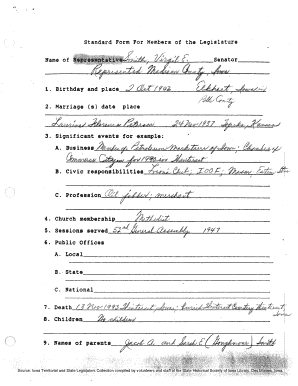 Standard Form For Members of the Legislature
Name of Representative Smith, Virgil E. Senator
Represented Madison County, Iowa
1. Birthday and place 2 Oct 1902 Elkhart, Iowa
Polk County
2. Marriage (s) date place
Florence Peterson 24 Nov 1937 Topeka, Kansas
3. Significant events for example:
A. Business Member of Petroleum Marketers of Iowa; Chamber of
Commerce Citizen for 1990 Winterset
B. Civic responsibilities Lions Club, IOOF, Mason,
C. Profession Oil jobber; merchant
4. Church membership Methodist
5. Sessions served 52nd General Assembly 1947
6. Public Offices
A. Local
B. State
C. National
7. Death 13 Nov 1992 Winterset, Iowa; buried Winterset Cemetery Winterset, Iowa
8. Children No children
9. Names of parents Jacob A. and Sarah E. Smith
Source: Iowa Territorial and State Legislators Collection compiled by volunteers and staff at the State Historical Society of Iowa Library, Des Moines, Iowa.